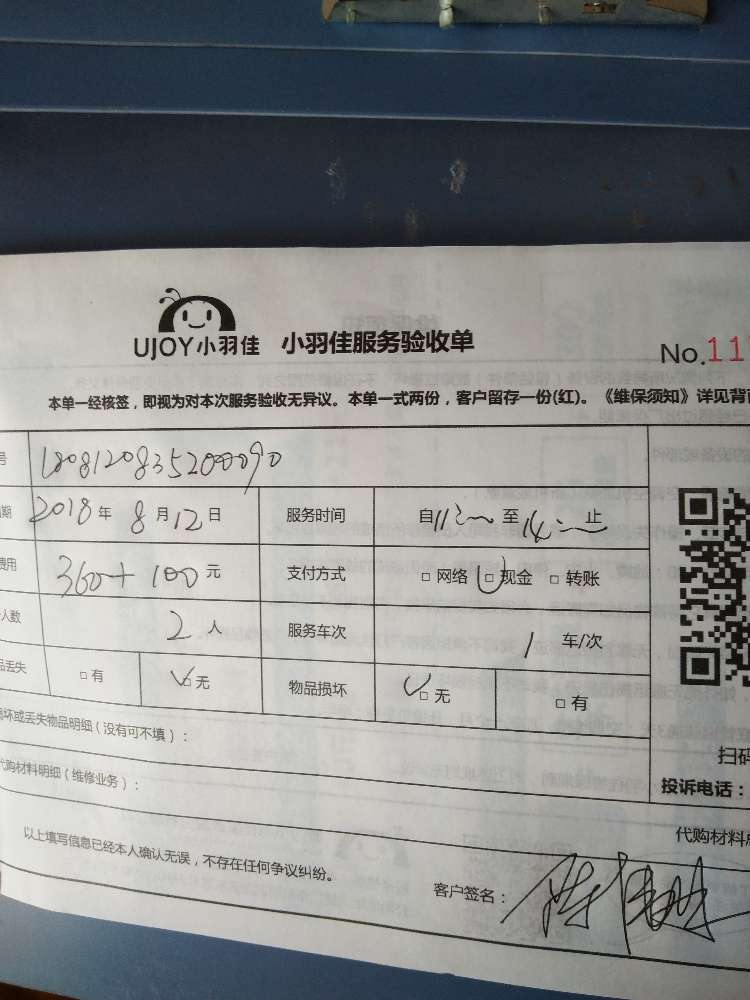 UJOY小羽佳 小羽佳服务验收单
No.11
本单一经核签，即视为对本次服务验收无异议。本单一式两份，客户留存一份(红)。《维保须知》详见背
号 180812083520090
期 2018年 8月12日 服务时间 自11:~至14:~止
费用 360+100元 支付方式 □网络 □现金 □转账
人数 2人 服务车次 1 车/次
品丢失 □有 □无 物品损坏 □无 □有
坏或丢失物品明细（没有可不填）：
扫码
代购材料明细（维修业务）：
投诉电话：
代购材料
以上填写信息已经本人确认无误，不存在任何争议纠纷。
客户签名：